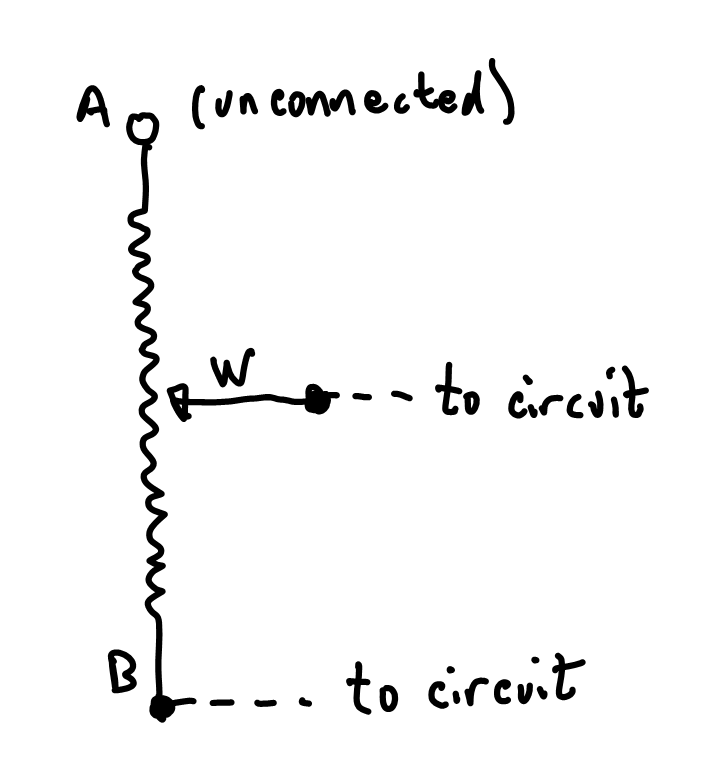 A (unconnected)
W
to circuit
B
to circuit